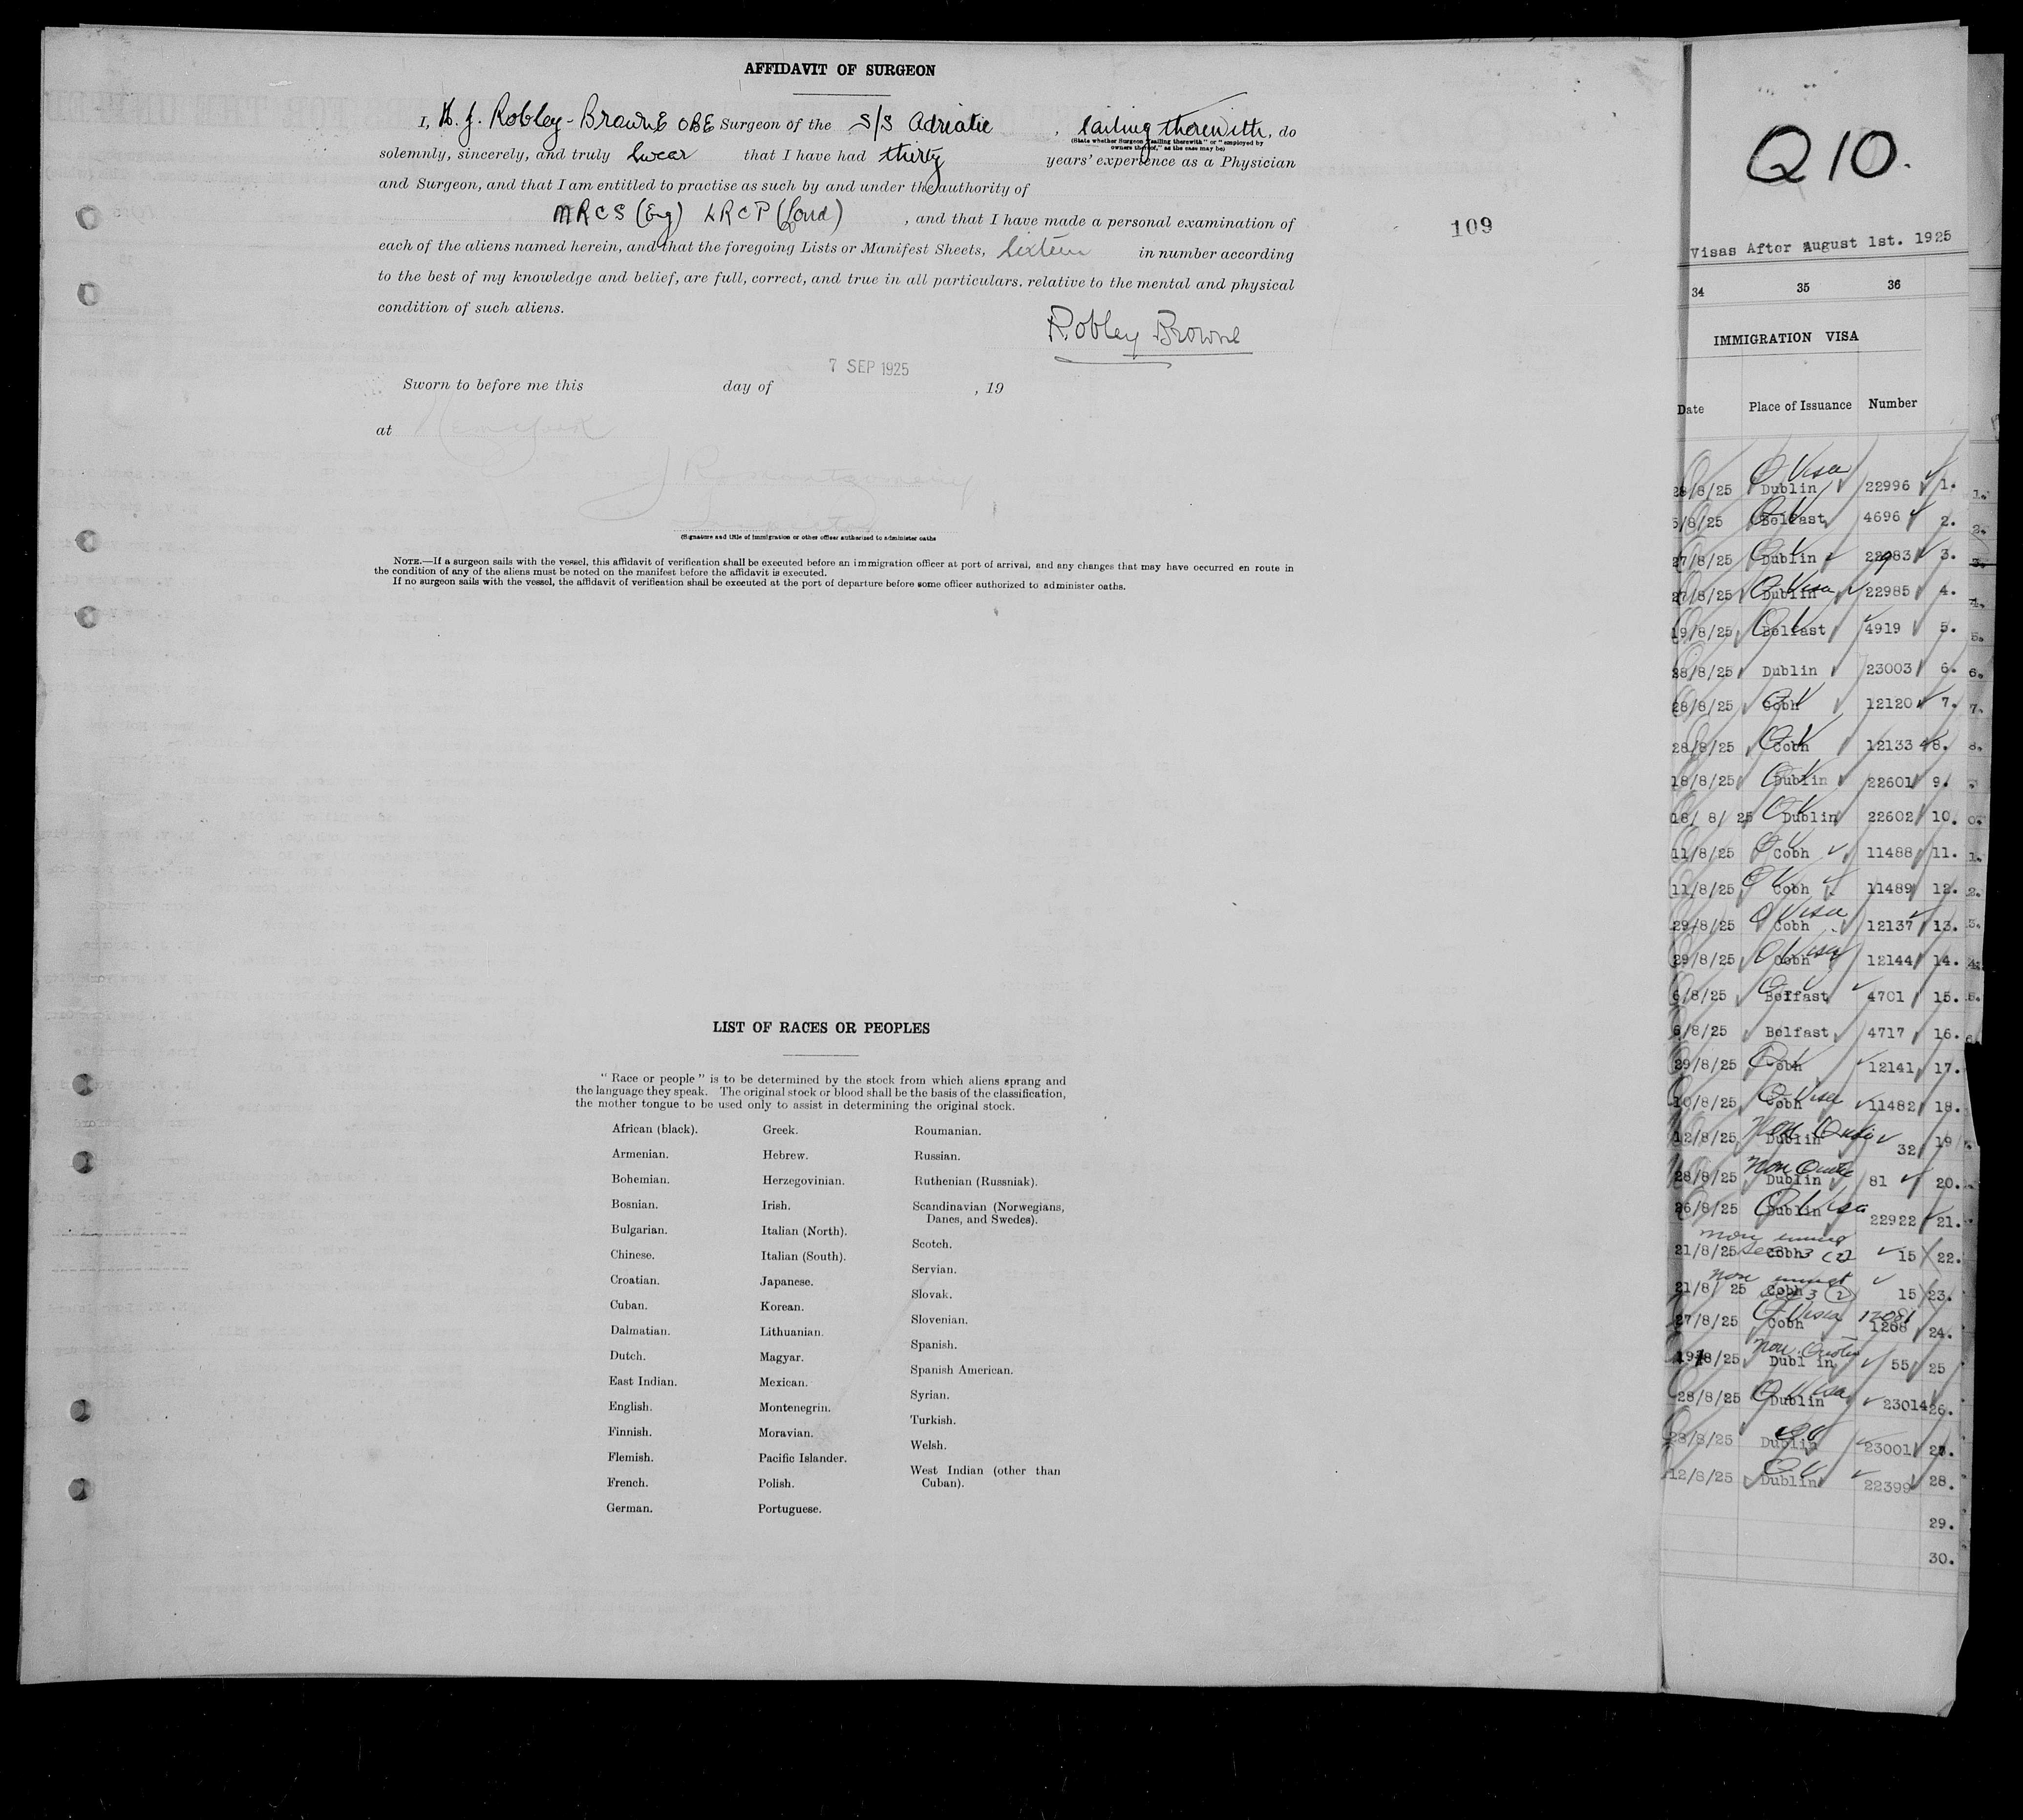 AFFIDAVIT OF SURGEON
I, H. J. Robley-Browne OBE Surgeon of the S/S Adriatic, sailing therewith, do
(State whether Surgeon "sailing therewith" or "employed by
owners thereof," as the case may be)
solemnly, sincerely, and truly swear that I have had thirty years' experience as a Physician
and Surgeon, and that I am entitled to practise as such by and under the authority of
MRCS (Eng) LRCP (Lond), and that I have made a personal examination of
each of the aliens named herein, and that the foregoing Lists or Manifest Sheets, Sixteen in number according
to the best of my knowledge and belief, are full, correct, and true in all particulars, relative to the mental and physical
condition of such aliens.
Robley Browne
7 SEP 1925
Sworn to before me this day of , 19
at New York
Montgomery
Inspector
(Signature and title of immigration or other officer authorized to administer oaths
NOTE.—If a surgeon sails with the vessel, this affidavit of verification shall be executed before an immigration officer at port of arrival, and any changes that may have occurred en route in
the condition of any of the aliens must be noted on the manifest before the affidavit is executed.
If no surgeon sails with the vessel, the affidavit of verification shall be executed at the port of departure before some officer authorized to administer oaths.
109
LIST OF RACES OR PEOPLES
"Race or people" is to be determined by the stock from which aliens sprang and
the language they speak. The original stock or blood shall be the basis of the classification,
the mother tongue to be used only to assist in determining the original stock.
African (black).
Armenian.
Bohemian.
Bosnian.
Bulgarian.
Chinese.
Croatian.
Cuban.
Dalmatian.
Dutch.
East Indian.
English.
Finnish.
Flemish.
French.
German.
Greek.
Hebrew.
Herzegovinian.
Irish.
Italian (North).
Italian (South).
Japanese.
Korean.
Lithuanian.
Magyar.
Mexican.
Montenegrin.
Moravian.
Pacific Islander.
Polish.
Portuguese.
Roumanian.
Russian.
Ruthenian (Russniak).
Scandinavian (Norwegians,
Danes, and Swedes).
Scotch.
Servian.
Slovak.
Slovenian.
Spanish.
Spanish American.
Syrian.
Turkish.
Welsh.
West Indian (other than
Cuban).
Q10.
Visas After August 1st. 1925
34 35 36
IMMIGRATION VISA
Date Place of Issuance Number
28/8/25 Q Visa Dublin 22996 1.
5/8/25 QV Belfast 4696 2.
27/8/25 QV Dublin 22983 3.
27/8/25 Q Visa Dublin 22985 4.
19/8/25 QV Belfast 4919 5.
28/8/25 Dublin 23003 6.
28/8/25 QV Cobh 12120 7.
28/8/25 QV Cobh 12133 8.
18/8/25 QV Dublin 22601 9.
18/ 8/ 25 QV Dublin 22602 10.
11/8/25 QV Cobh 11488 11.
11/8/25 QV Cobh 11489 12.
29/8/25 Q Visa Cobh 12137 13.
29/8/25 Q Visa Cobh 12144 14.
6/8/25 QV Belfast 4701 15.
6/8/25 Belfast 4717 16.
29/8/25 QV Cobh 12141 17.
10/8/25 Q Visa Cobh 11482 18.
12/8/25 Non Quota Dublin 32 19
28/8/25 Non Quota Dublin 81 20.
26/8/25 Q Visa Dublin 22922 21.
21/8/25 non immig Sec 3 (2) Cobh 15 22.
21/8/ 25 non immgt Sec 3 (2) Cobh 15 23.
27/8/25 Q Visa Cobh 12081 1208 24.
19/8/25 Non Quota Dubl in 55 25
28/8/25 Q Visa Dublin 23014 26.
28/8/25 QV Dublin 23001 27.
12/8/25 QV Dublin 22399 28.
29.
30.